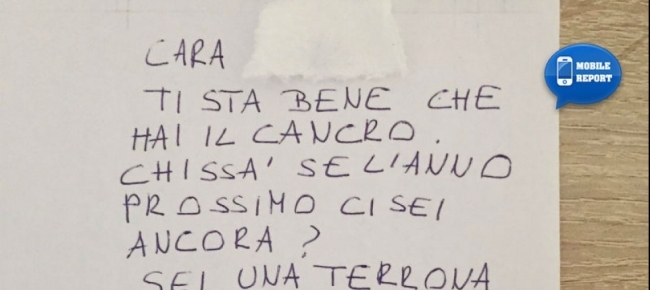 CARA
TI STA BENE CHE
HAI IL CANCRO.
CHISSA' SE L'ANNO
PROSSIMO CI SEI
ANCORA?
SEI UNA TERRONA
MOBILE
REPORT